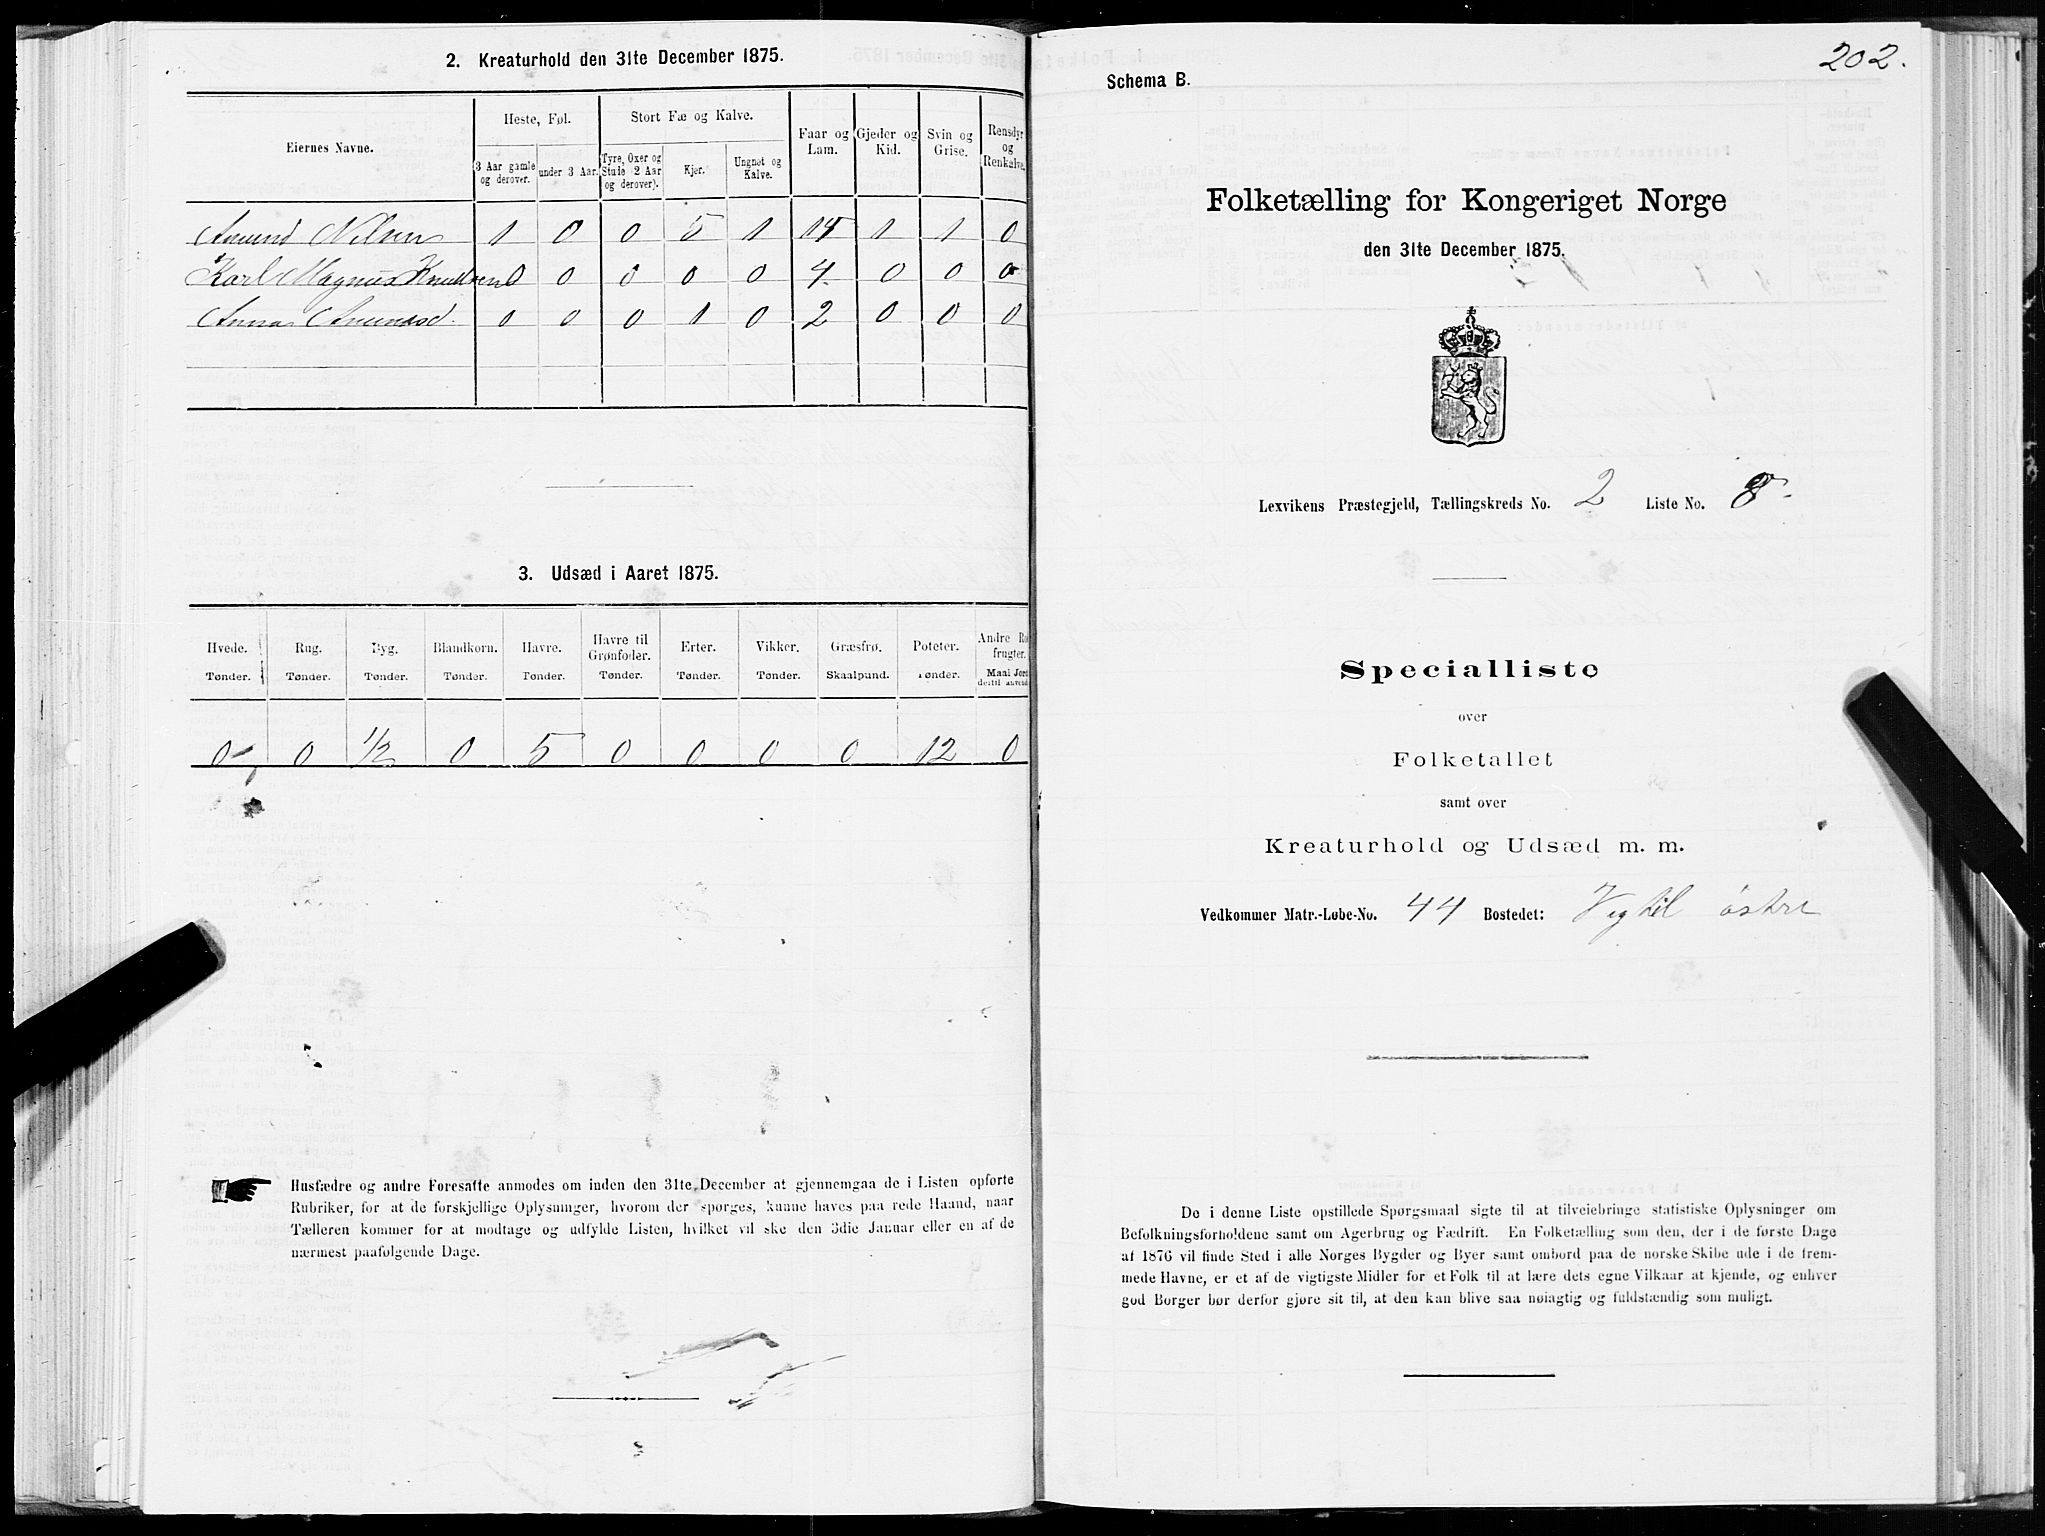 2. Kreaturhold den 31te December 1875.
Eiernes Navne.
Heste, Føl.
Stort Fæ og Kalve.
3 Aar gamle og derover.
under 3 Aar.
Tyre, Oxer og Stude (2 Aar og derover).
Kjør.
Ungnøt og Kalve.
Faar og Lam.
Gjeder og Kid.
Svin og Grise.
Rensdyr og Renkalve.
Amund Nilsen 1 0 0 5 1 14 1 1 0
Karl Magnus Knudsen 0 0 0 0 0 4 0 0 0
Anna Amundsd. 0 0 0 1 0 2 0 0 0
3. Udsæd i Aaret 1875.
Hvede. Rug. Byg. Blandkorn. Havre. Havre til Grønfoder. Erter. Vikker. Græsfrø. Poteter. Andre Rodfrugter.
Tønder. Tønder. Tønder. Tønder. Tønder. Tønder. Tønder. Tønder. Skaalpund. Tønder. Maal Jord
0 0 1/2 0 5 0 0 0 0 12 0
Husfædre og andre Foresatte anmodes om inden den 31te December at gjennemgaa de i Listen opførte
Rubriker, for at de forskjellige Oplysninger, hvorom der spørges, kunne haves paa rede Haand, naar
Tælleren kommer for at modtage og udfylde Listen, hvilket vil ske den 3die Januar eller en af de
nærmest paafølgende Dage.
202.
Schema B.
Folketælling for Kongeriget Norge
den 31te December 1875.
Lexvikens Præstegjeld, Tællingskreds No. 2 Liste No. 8
Specialliste
over
Folketallet
samt over
Kreaturhold og Udsæd m. m.
Vedkommer Matr.-Løbe-No. 44 Bostedet: Vigtil østre
De i denne Liste opstillede Spørgsmaal sigte til at tilveiebringe statistiske Oplysninger om
Befolkningsforholdene samt om Agerbrug og Fædrift. En Folketælling som den, der i de første Dage
af 1876 vil finde Sted i alle Norges Bygder og Byer samt ombord paa de norske Skibe ude i de frem-
mede Havne, er et af de vigtigste Midler for et Folk til at lære dets egne Vilkaar at kjende, og enhver
god Borger bør derfor gjøre sit til, at den kan blive saa nøiagtig og fuldstændig som muligt.